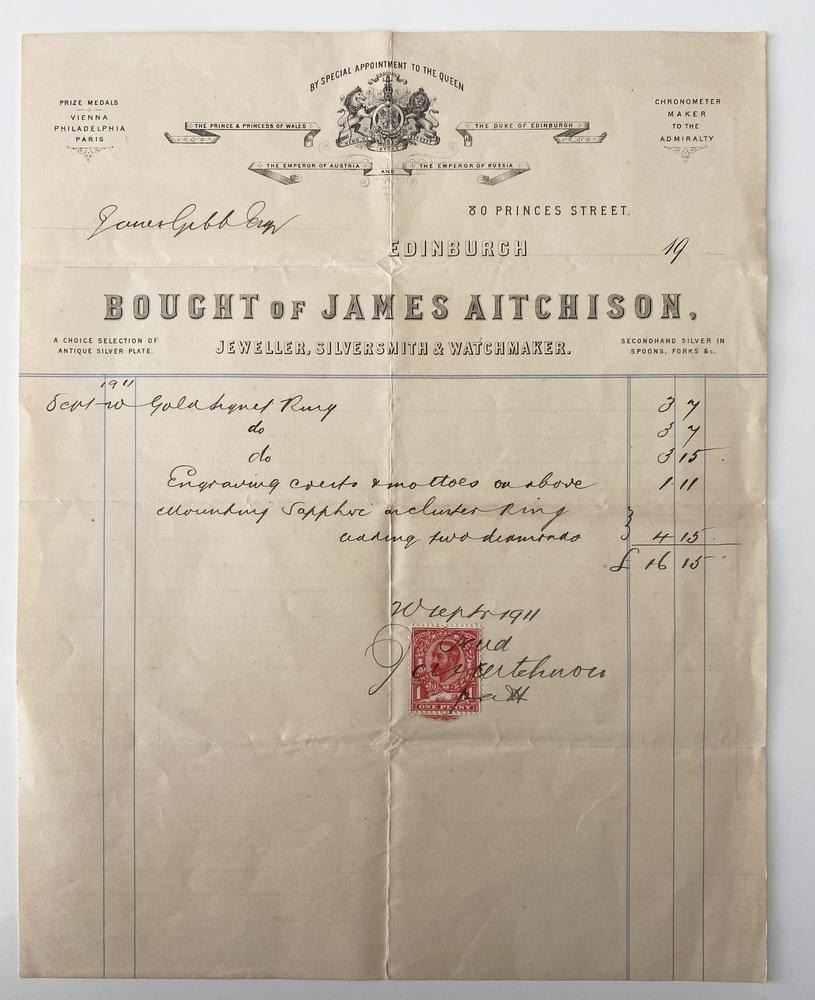 BY SPECIAL APPOINTMENT TO THE QUEEN
PRIZE MEDALS
VIENNA
PHILADELPHIA
PARIS
CHRONOMETER
MAKER
TO THE
ADMIRALTY
THE PRINCE & PRINCESS OF WALES
THE DUKE OF EDINBURGH
THE EMPEROR OF AUSTRIA AND THE EMPEROR OF RUSSIA
80 PRINCES STREET.
James Gibb Esqr
EDINBURGH 19
BOUGHT OF JAMES AITCHISON,
A CHOICE SELECTION OF
ANTIQUE SILVER PLATE.
JEWELLER, SILVERSMITH & WATCHMAKER.
SECONDHAND SILVER IN
SPOONS, FORKS &c.
1911
Sept Gold Signet Ring 3 7
do 3 7
do 3 15
Engraving crests & mottoes on above 1 11
Mounting Sapphire in cluster Ring
adding two diamonds 4 15
£ 16 15
Sept 1911
Aitchison
1 1
ONE PENNY